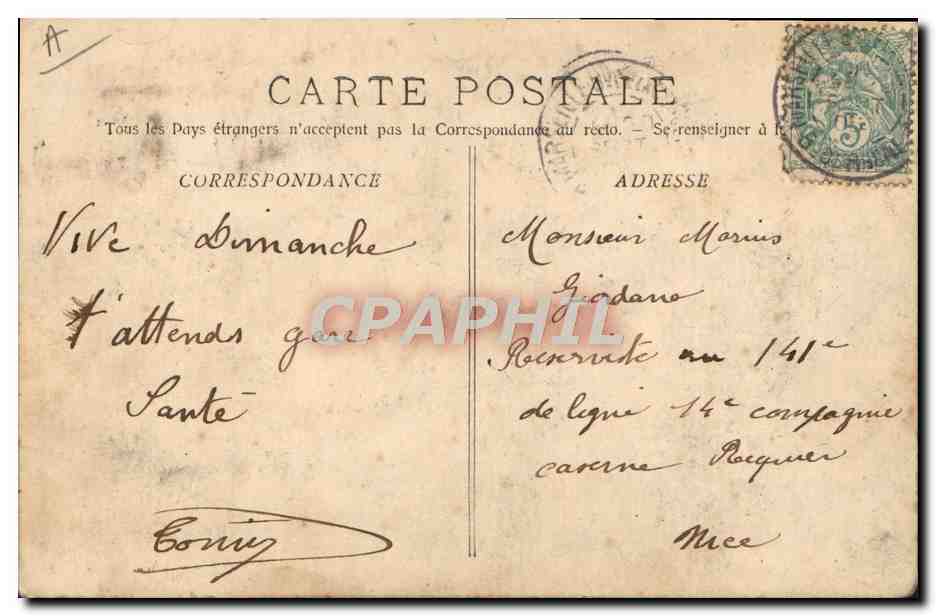 A
CARTE POSTALE
Tous les Pays étrangers n'acceptent pas la Correspondance au recto. - Se renseigner à l
CORRESPONDANCE
Vive Dimanche
t'attends gare
Santé
ADRESSE
Monsieur Marius
Giordano
Reserviste au 141e
de ligne 14e compagnie
caserne Requier
Nice
5c
CPAPHIL